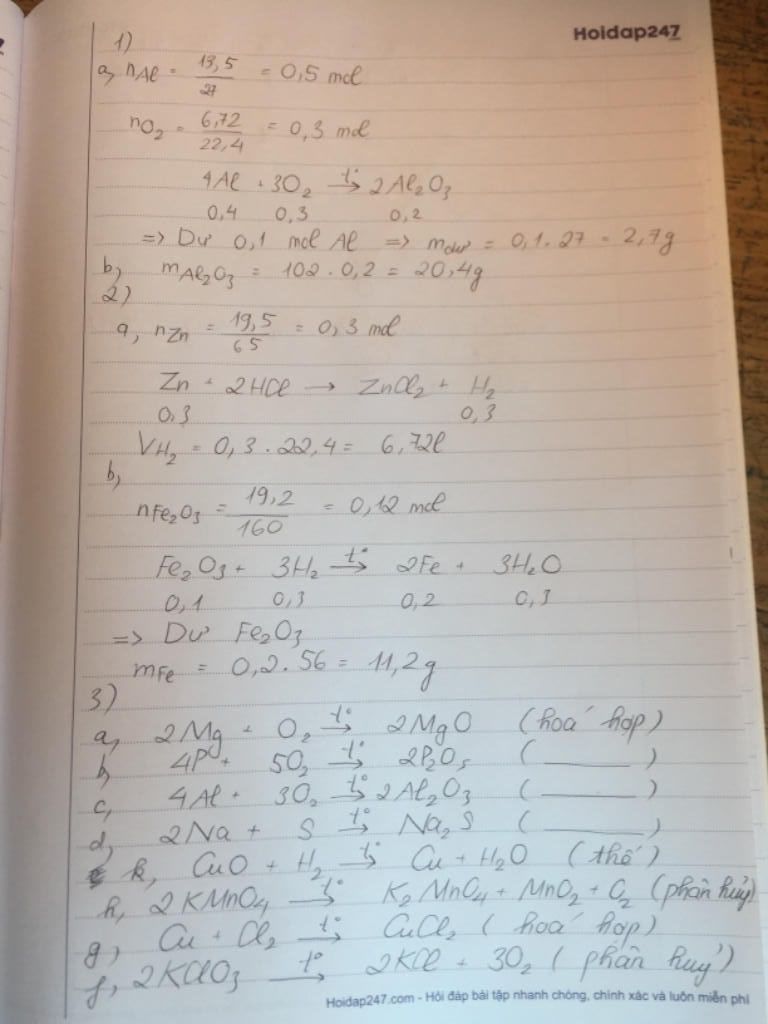 Hoidap247
1)
a, nAl = 13,5/27 = 0,5 mol
nO₂ = 6,72/22,4 = 0,3 mol
4Al + 3O₂ →t° 2Al₂O₃
0,4 0,3 0,2
=> Dư 0,1 mol Al => mdư = 0,1.27 = 2,7g
b, mAl₂O₃ = 102.0,2 = 20,4g
2)
a, nZn = 19,5/65 = 0,3 mol
Zn + 2HCl → ZnCl₂ + H₂
0,3 0,3
VH₂ = 0,3.22,4 = 6,72l
b,
nFe₂O₃ = 19,2/160 = 0,12 mol
Fe₂O₃ + 3H₂ →t° 2Fe + 3H₂O
0,1 0,3 0,2 0,3
=> Dư Fe₂O₃
mFe = 0,2.56 = 11,2g
3)
a, 2Mg + O₂ →t° 2MgO (hoá hợp)
b, 4P + 5O₂ →t° 2P₂O₅ (______)
c, 4Al + 3O₂ →t° 2Al₂O₃ (______)
d, 2Na + S →t° Na₂S (______)
k, CuO + H₂ →t° Cu + H₂O (thế)
h, 2KMnO₄ →t° K₂MnO₄ + MnO₂ + O₂ (phân huỷ)
g, Cu + Cl₂ →t° CuCl₂ (hoá hợp)
f, 2KClO₃ →t° 2KCl + 3O₂ (phân huỷ)
Hoidap247.com - Hỏi đáp bài tập nhanh chóng, chính xác và luôn miễn phí